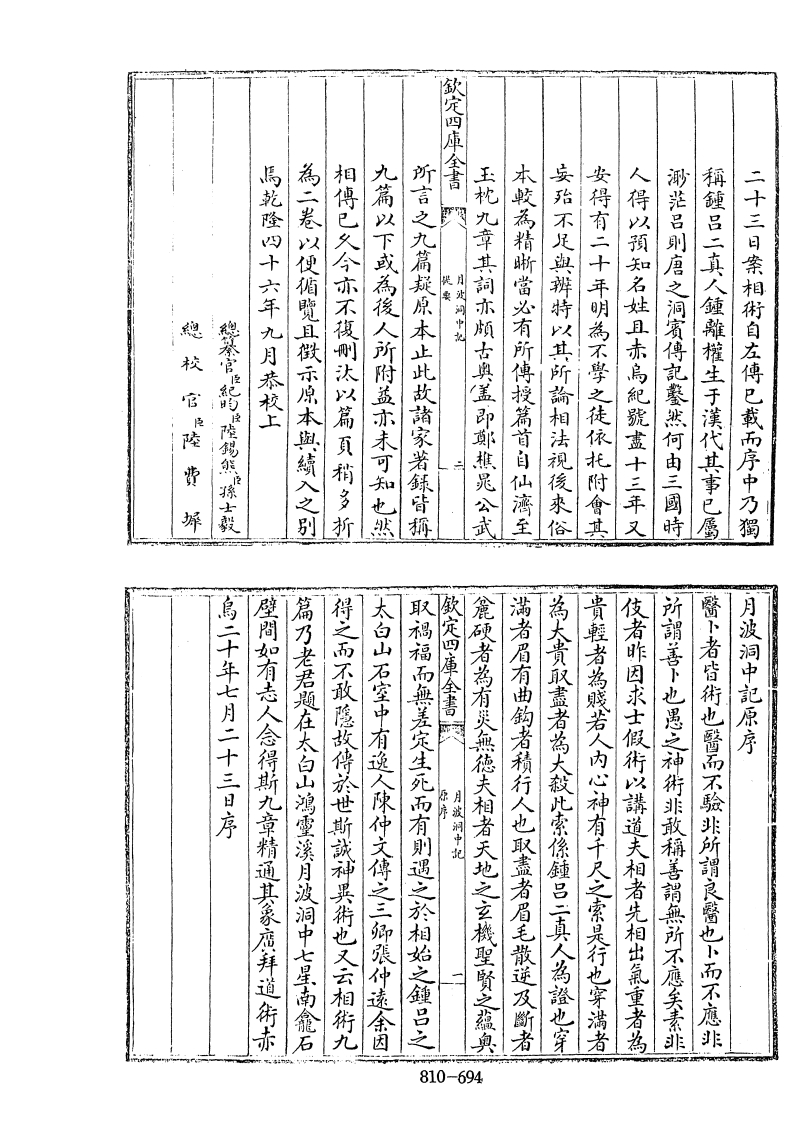 二十三日案相術自左傳已載而序中乃獨
稱鍾呂二真人鍾離權生于漢代其事已屬
渺茫呂則唐之洞賓傳記鑿然何由三國時
人得以預知名姓且赤烏紀號盡十三年又
安得有二十年明為不學之徒依托附會其
妄殆不足與辨特以其所論相法視後來俗
本較為精晰當必有所傳授篇首自仙濟至
玉枕九章其詞亦頗古奧蓋即鄭樵晁公武
欽定四庫全書
月波洞中記
提要
二
所言之九篇疑原本止此故諸家著録皆稱
九篇以下或為後人所附益亦未可知也然
相傳已久今亦不復刪汰以篇頁稍多析
為二卷以便循覽且徴示原本與續入之别
焉乾隆四十六年九月恭校上
總纂官臣紀昀臣陸錫熊臣孫士毅
總校官臣陸費墀
月波洞中記原序
醫卜者皆術也醫而不驗非所謂良醫也卜而不應非
所謂善卜也愚之神術非敢稱善謂無所不應矣素非
伎者昨因求士假術以講道夫相者先相出氣重者為
貴輕者為賤若人内心神有千尺之索是行也穿滿者
為大貴取盡者為大殺此索係鍾呂二真人為證也穿
滿者眉有曲鈎者積行人也取盡者眉毛散逆及斷者
麄硬者為有災無徳夫相者天地之玄機聖賢之蘊奥
欽定四庫全書
月波洞中記
原序
一
取禍福而無差定生死而有則遇之於相始之鍾呂之
太白山石室中有逸人陳仲文傳之三卿張仲逺余因
得之而不敢隱故傳於世斯誠神異術也又云相術九
篇乃老君題在太白山鴻靈溪月波洞中七星南龕石
壁間如有志人念得斯九章精通其象廣拜道術赤
烏二十年七月二十三日序
810-694